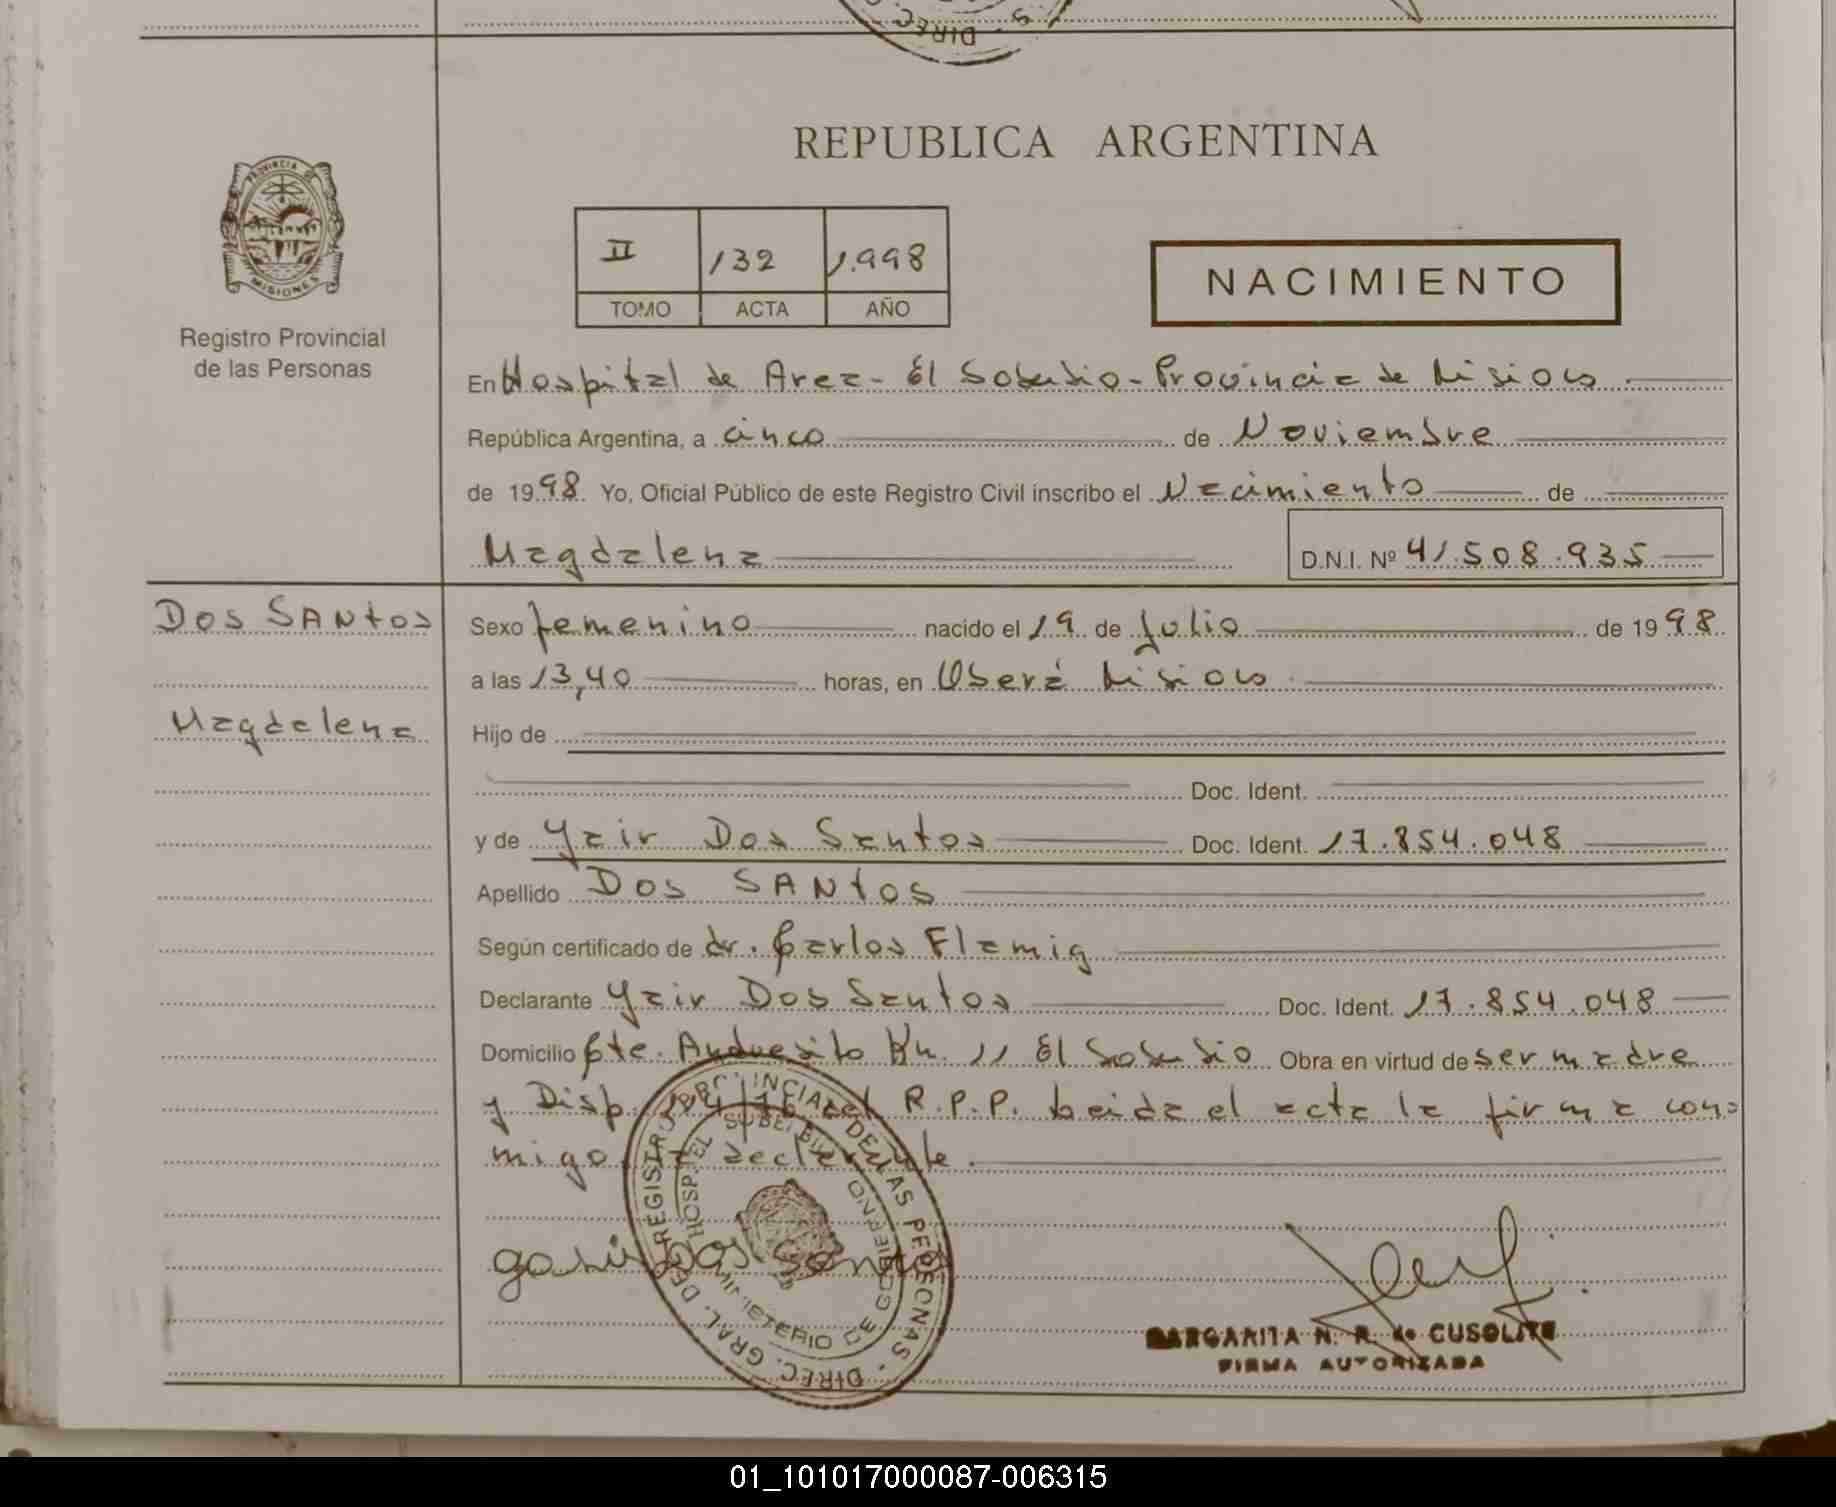 REPUBLICA ARGENTINA
PROVINCIA DE
MISIONES
Registro Provincial
de las Personas
II 132 1.998
TOMO ACTA AÑO
NACIMIENTO
En Hospital de Area - El Soberbio - Provincia de Misiones
República Argentina, a cinco de Noviembre
de 1998. Yo, Oficial Público de este Registro Civil inscribo el Nacimiento de
Magdalena D.N.I. Nº 41.508.935
DOS SANtOS
Magdalena
Sexo femenino nacido el 19 de Julio de 1998
a las 13,40 horas, en Oberá Misiones
Hijo de
Doc. Ident.
y de Yair Dos Santos Doc. Ident. 17.854.048
Apellido DOS SANtOS
Según certificado de dr. Carlos Flamig
Declarante Yair Dos Santos Doc. Ident. 17.854.048
Domicilio Cte. Andresito Km. 11 El Soberbio Obra en virtud de ser madre
y Disp. del R.P.P. Leida el acta la firma con=
migo la declarante.
Dos Santos
MARGARITA N. R. de CUSOLITE
FIRMA AUTORIZADA
01_101017000087-006315